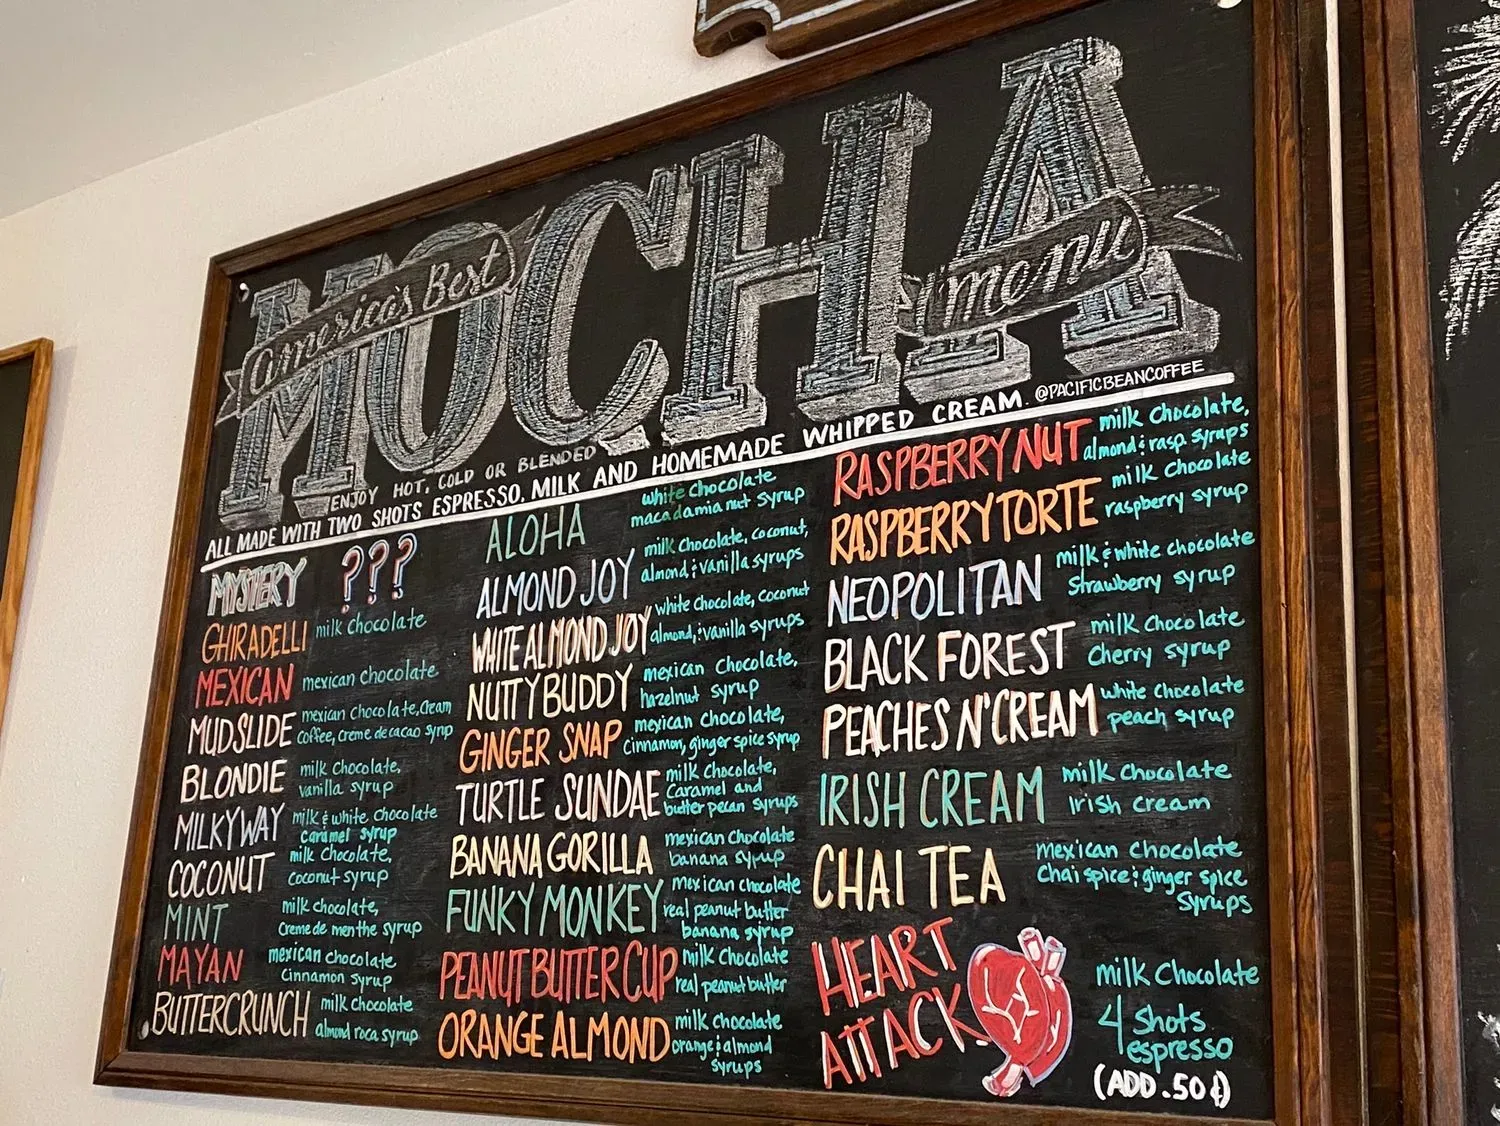 America's Best
MOCHA
menu
ENJOY HOT, COLD OR BLENDED
@PACIFICBEANCOFFEE
ALL MADE WITH TWO SHOTS ESPRESSO, MILK AND HOMEMADE WHIPPED CREAM.
MYSTERY ???
GHIRADELLI milk chocolate
MEXICAN mexican chocolate
MUDSLIDE mexican chocolate, cream
coffee, creme de cacao syrup
BLONDIE milk chocolate,
vanilla syrup
MILKYWAY milk & white chocolate
caramel syrup
COCONUT milk chocolate,
coconut syrup
MINT milk chocolate,
creme de menthe syrup
MAYAN mexican chocolate
cinnamon syrup
BUTTERCRUNCH milk chocolate
almond roca syrup
ALOHA white chocolate
macadamia nut syrup
ALMOND JOY milk chocolate, coconut,
almond, & vanilla syrups
WHITE ALMOND JOY white chocolate, coconut
almond, & vanilla syrups
NUTTY BUDDY mexican chocolate,
hazelnut syrup
GINGER SNAP mexican chocolate,
cinnamon, ginger spice syrup
TURTLE SUNDAE milk chocolate,
caramel and
butter pecan syrups
BANANA GORILLA mexican chocolate
banana syrup
FUNKY MONKEY mexican chocolate
real peanut butter
banana syrup
PEANUT BUTTER CUP milk chocolate
real peanut butter
ORANGE ALMOND milk chocolate
orange & almond
syrups
RASPBERRY NUT milk chocolate,
almond & rasp. syrups
RASPBERRY TORTE milk chocolate
raspberry syrup
NEOPOLITAN milk & white chocolate
strawberry syrup
BLACK FOREST milk chocolate
cherry syrup
PEACHES N' CREAM white chocolate
peach syrup
IRISH CREAM milk chocolate
irish cream
CHAI TEA mexican chocolate
chai spice & ginger spice
syrups
HEART
ATTACK
milk chocolate
4 shots
espresso
(ADD .50¢)